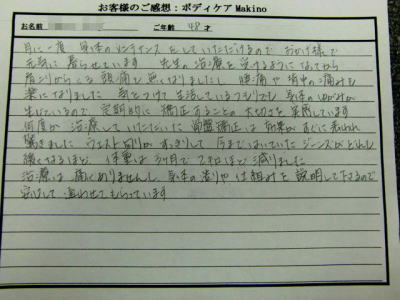 お客様のご感想：ボディケア Makino
お名前 ご年齢 48才
月に一度 身体のメンテナンスをしていただけるので おかげ様で
元気に暮らせています 先生の治療を受けるようになってから
肩こりからくる頭痛も無くなりましたし 腰痛や背中の痛みも
楽になりました 気をつけて生活しているつもりでも 身体のゆがみが
生じているので 定期的に矯正することの大切さを実感しています
何度か治療していただいた骨盤矯正は 効果がすぐに表われ
驚きました ウエスト周りがすっきりして 今まではいていたジーンズがどれも
緩くなるほど 体重は3ヶ月で2キロほど減りました
治療は痛くありませんし 身体の造りや仕組みを説明して下さるので
安心して通わせてもらっています